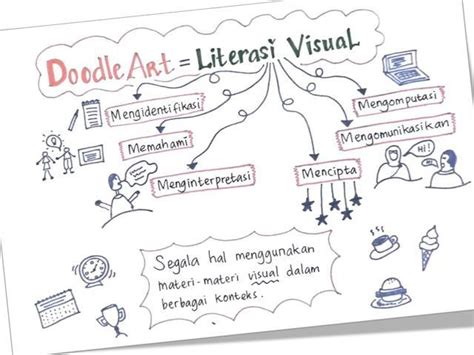 Doodle Art = Literasi Visual
Mengidentifikasi
Memahami
Menginterpretasi
Mencipta
Mengomunikasikan
Mengomputasi
Hi!
Segala hal menggunakan
materi-materi visual dalam
berbagai konteks.